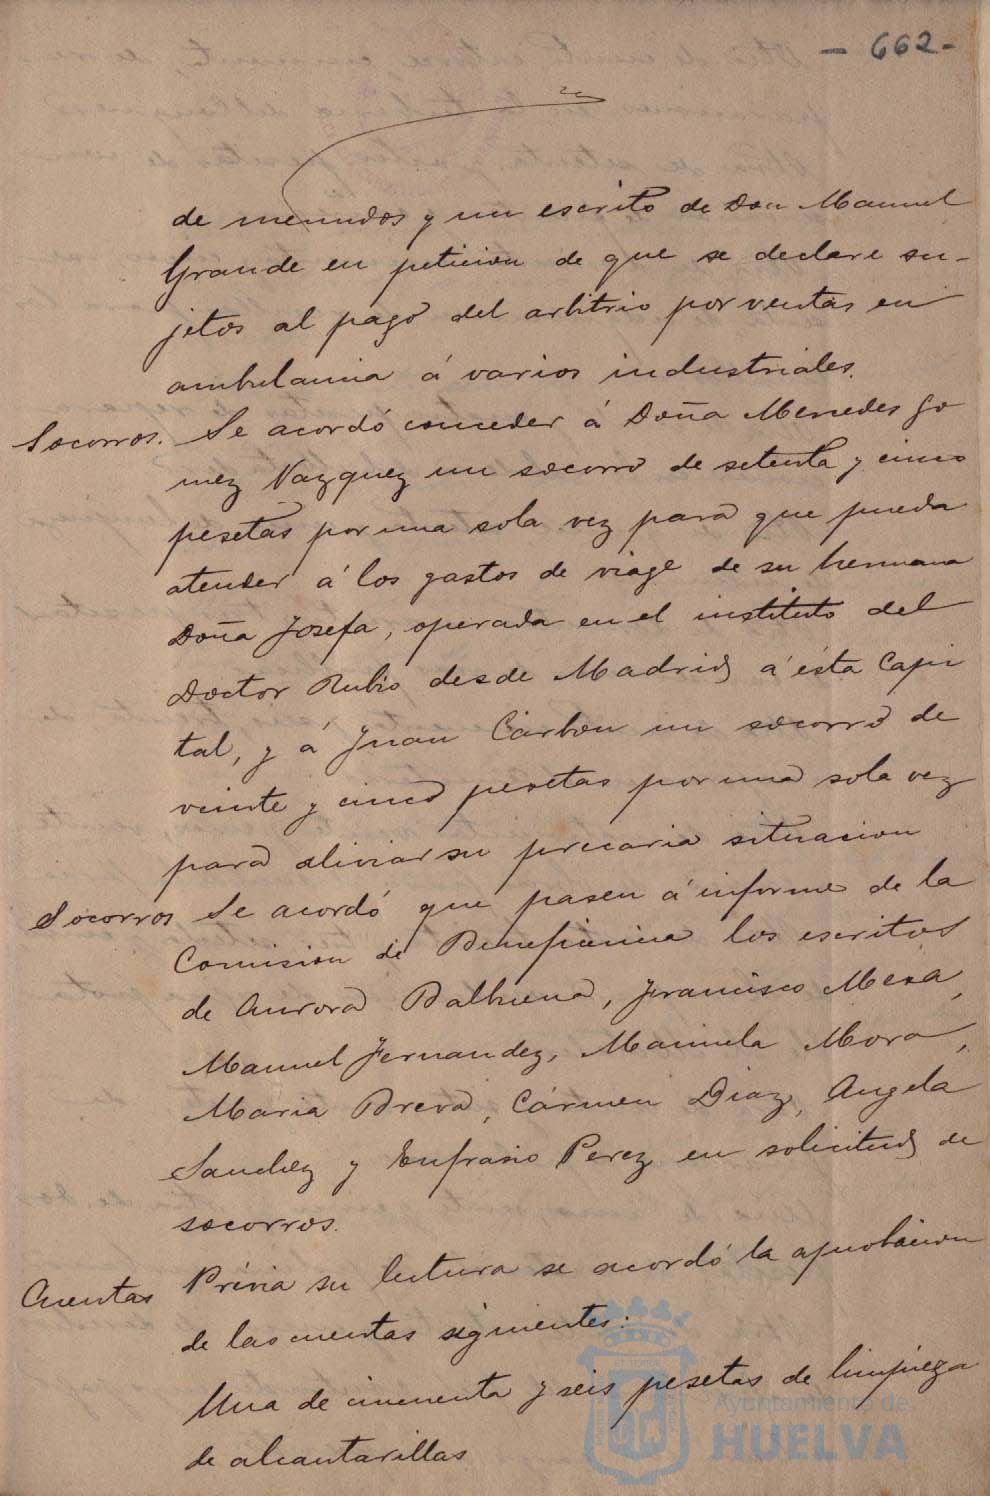 - 662 -
de menudos y un escrito de Don Manuel
Grande en peticion de que se declare su-
jetos al pago del arbitrio por ventas en
ambulancia á varios industriales.
Socorros. Se acordó conceder á Doña Mercedes Go
mez Vazquez un socorro de setenta y cinco
pesetas por una sola vez para que pueda
atender á los gastos de viage de su hermana
Doña Josefa, operada en el instituto del
Doctor Rubio desde Madrid á ésta Capi
tal, y á Juan Carbon un socorro de
veinte y cinco pesetas por una sola vez
para aliviar su precaria situacion
Socorros Se acordó que pasen á informe de la
Comision de Beneficencia los escritos
de Aurora Balbuena, Francisco Mesa,
Manuel Fernandez, Manuela Mora,
Maria Breva, Cármen Diaz, Angela
Sanchez y Eufrasio Perez en solicitud de
socorros.
Cuentas Prévia su lectura se acordó la aprobacion
de las cuentas siguientes:
Una de cincuenta y seis pesetas de limpieza
de alcantarillas
Ayuntamiento de
HUELVA